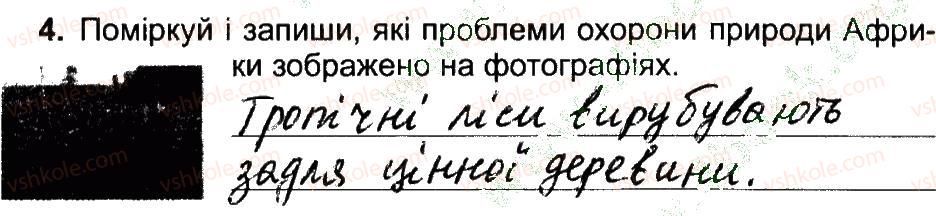 4. Поміркуй і запиши, які проблеми охорони природи Афри-
ки зображено на фотографіях.
Тропічні ліси вирубувають
задля цінної деревини.